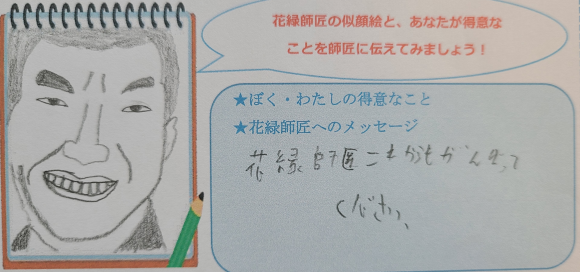 花緑師匠の似顔絵と、あなたが得意な
ことを師匠に伝えてみましょう！
★ぼく・わたしの得意なこと
★花緑師匠へのメッセージ
花緑師匠これからもがんばって
ください